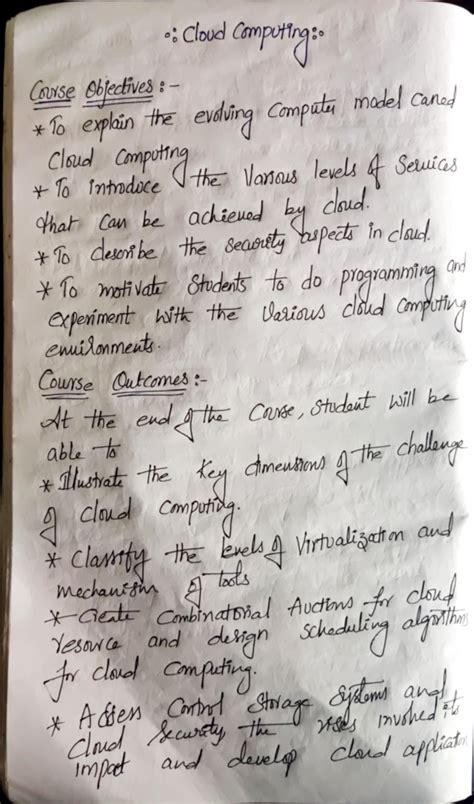 Cloud Computing:
Course Objectives :-
* To explain the evolving Computer model Caned
Cloud Computing
* To introduce the Various levels of Services
that can be achieved by cloud.
* To describe the security aspects in cloud.
* To motivate Students to do programming and
experiment with the various cloud computing
environments.
Course Outcomes :-
At the end of the Course, Student will be
able to
* Illustrate the key dimensions of the challenge
of cloud Computing.
* Classify the levels of Virtualization and
mechanism of tools
* Create Combinatorial Auctions for cloud
resource and design scheduling algorithms
for cloud Computing.
* Assess Control Storage Systems and
Cloud Security the involved its
impact and develop cloud application